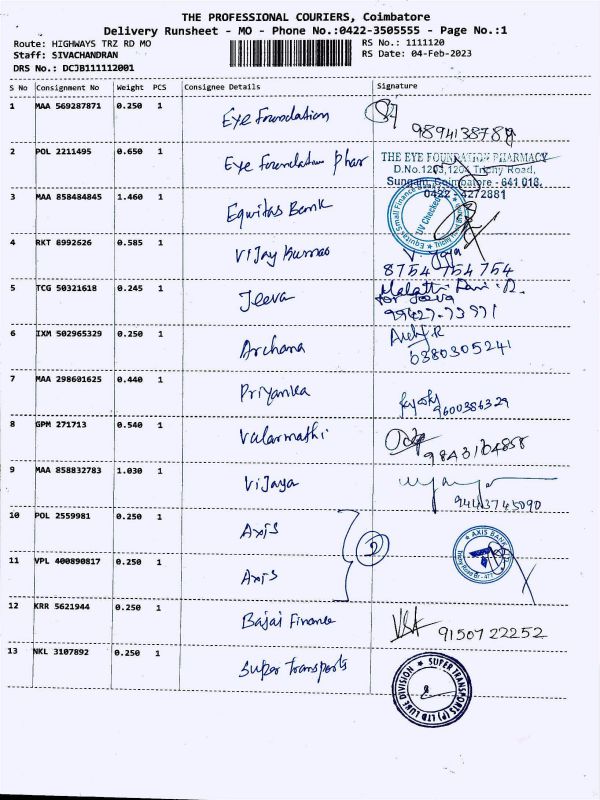 THE PROFESSIONAL COURIERS, Coimbatore
Delivery Runsheet - MO - Phone No.:0422-3505555 - Page No.:1
Route: HIGHWAYS TRZ RD MO RS No.: 1111120
Staff: SIVACHANDRAN RS Date: 04-Feb-2023
DRS No.: DCJB111112001
S No Consignment No Weight PCS Consignee Details Signature
1 MAA 569287871 0.250 1 Eye Foundation
9894138789
2 POL 2211495 0.650 1 Eye Foundation Phar
THE EYE FOUNDATION PHARMACY
D.No.1203,1204 Trichy Road,
Sungam, Coimbatore - 641 018.
0422 - 4272881
3 MAA 858484845 1.460 1 Equitas Bank
Equitas Small Finance
UV Checked
4 RKT 8992626 0.585 1 Vijay Kumar
8754 754 754
5 TCG 50321618 0.245 1 Jeeva
for Jeeva
99427-73971
6 IXM 502965329 0.250 1 Archana
6380305241
7 MAA 298601625 0.440 1 Priyanka
9600386329
8 GPM 271713 0.540 1 Valarmathi
9843164858
9 MAA 858832783 1.030 1 Vijaya
9443745090
10 POL 2559981 0.250 1 Axis
2
AXIS BANK
Trichy Road Br
11 VPL 400890817 0.250 1 Axis
12 KRR 5621944 0.250 1 Bajai Finance
9150722252
13 NKL 3107892 0.250 1 Super Transports
SUPER TRANSPORTS (P) LTD LUBE DIVISION